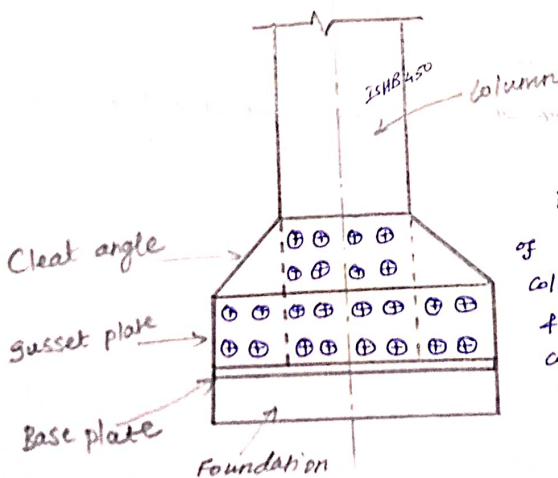 ISHB 450
Column
Cleat angle
of
col
gusset plate
Base plate
Foundation